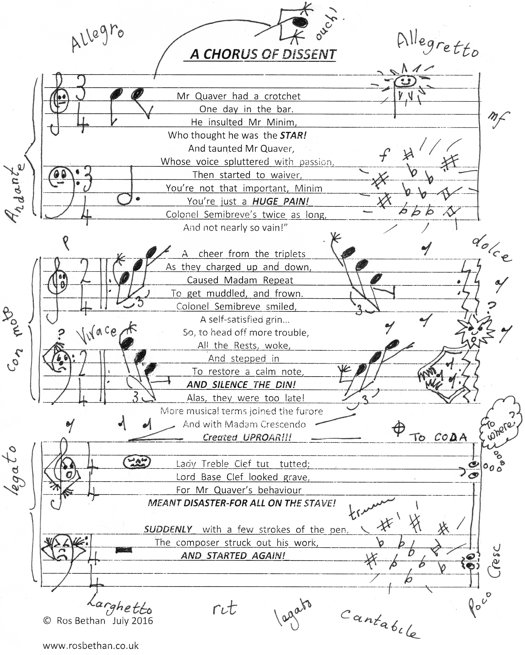 ouch!
Allegro
A CHORUS OF DISSENT
Allegretto
3
4
Mr Quaver had a crotchet
One day in the bar.
He insulted Mr Minim,
mf
Who thought he was the STAR!
And taunted Mr Quaver,
f
Andante
Whose voice spluttered with passion,
3
4
Then started to waiver,
You're not that important, Minim
You're just a HUGE PAIN!
Colonel Semibreve's twice as long,
And not nearly so vain!"
P
dolce
2
4
A cheer from the triplets
As they charged up and down,
Caused Madam Repeat
To get muddled, and frown.
3
3
Colonel Semibreve smiled,
A self-satisfied grin...
con moto
?
Vivace
So, to head off more trouble,
2
4
All the Rests, woke,
And stepped in
To restore a calm note,
AND SILENCE THE DIN!
3
3
Alas, they were too late!
More musical terms joined the furore
And with Madam Crescendo
Created UPROAR!!!
TO CODA
To where?
legato
4
4
Lady Treble Clef tut tutted;
Lord Base Clef looked grave,
For Mr Quaver's behaviour
MEANT DISASTER-FOR ALL ON THE STAVE!
SUDDENLY with a few strokes of the pen.
4
4
The composer struck out his work,
AND STARTED AGAIN!
Poco Cresc
Larghetto
rit
legato
cantabile
© Ros Bethan July 2016
www.rosbethan.co.uk